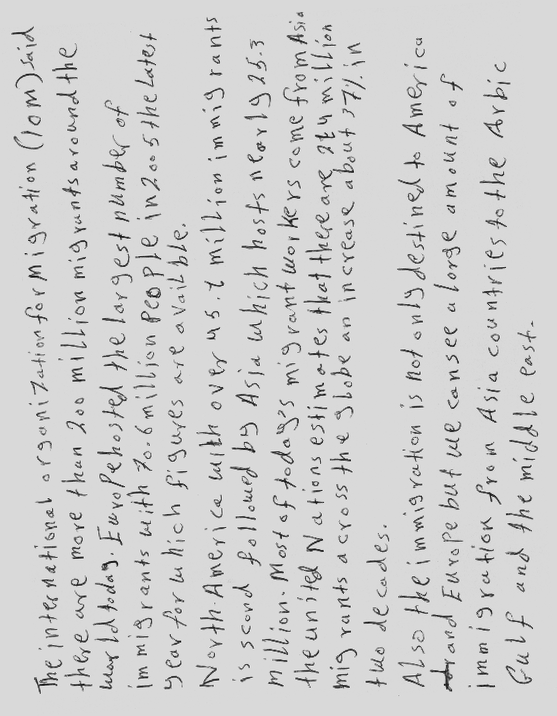 The international organization for migration (IOM) said
there are more than 200 million migrants around the
world today. Europe hosted the largest number of
immigrants with 70.6 million People in 2005 the latest
year for which figures are availble.
North America with over 45.1 million immigrants
is scond followed by Asia which hosts nearly 25.3
million. Most of today's migrant workers come from Asia
the united Nations estimates that there are 214 million
migrants across the globe an increase about 37% in
two decades.
Also the immigration is not only destined to America
and Europe but we can see a large amount of
immigration from Asia countries to the Arbic
Gulf and the middle east.